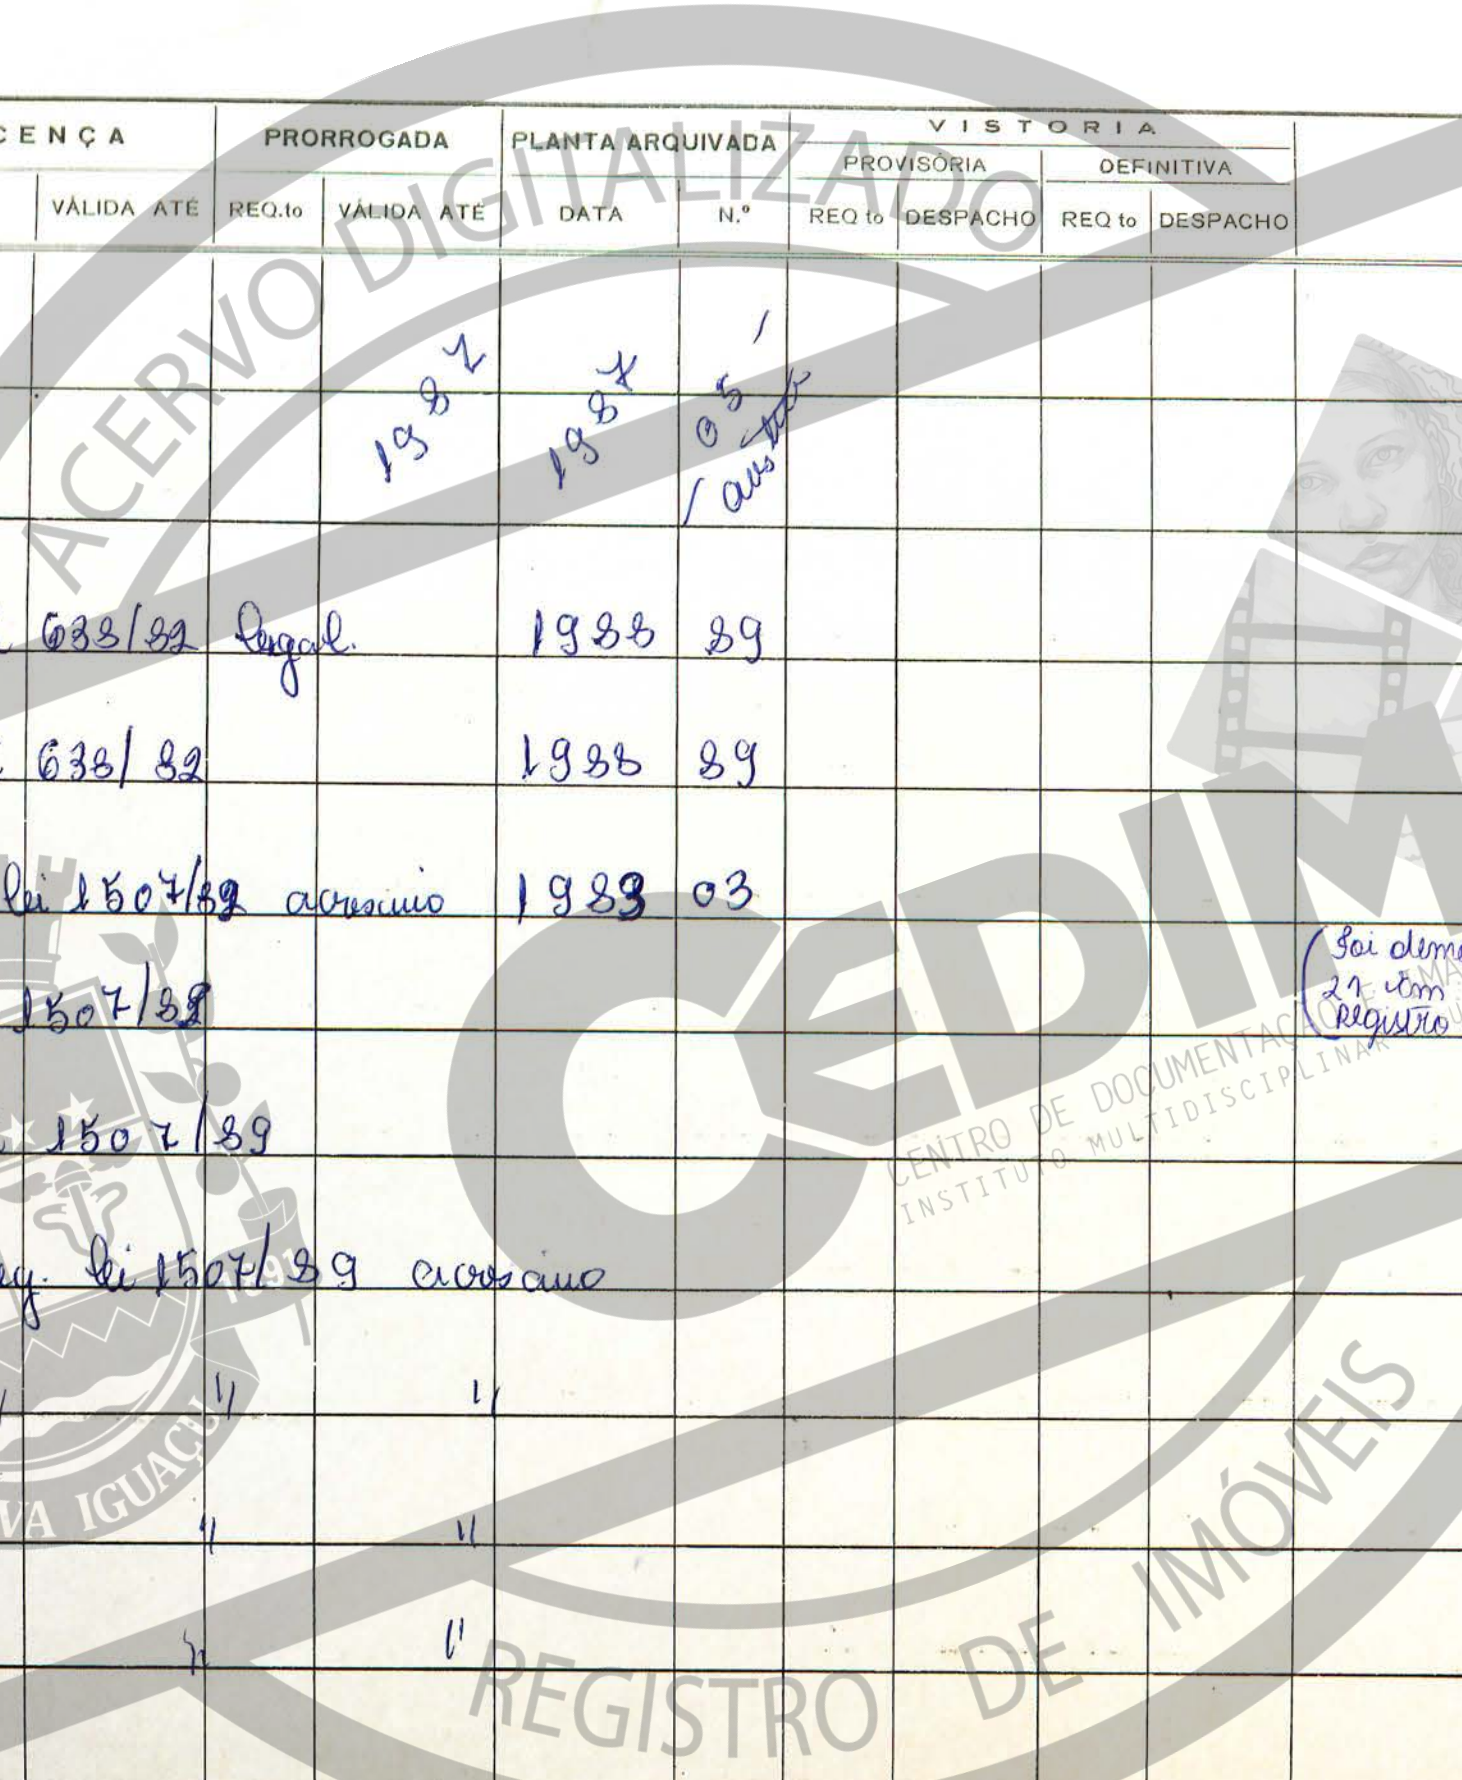 CENÇA PRORROGADA PLANTA ARQUIVADA VISTORIA
PROVISÓRIA DEFINITIVA
VÁLIDA ATÉ REQ.to VÁLIDA ATÉ DATA N.º REQ to DESPACHO REQ to DESPACHO
1987 1987 05
638/82 legal. 1988 89
638/82 1988 89
lei 1507/89 acrescimo 1989 03
Foi deme
1507/89 21 em
Registro
1507/89
lei 1507/89 acrescimo
" "
" "
" "
ACERVO DIGITALIZADO
CEDIM
CENTRO DE DOCUMENTAÇÃO E
INSTITUTO MULTIDISCIPLINAR
1891
VA IGUAÇU
REGISTRO DE IMÓVEIS